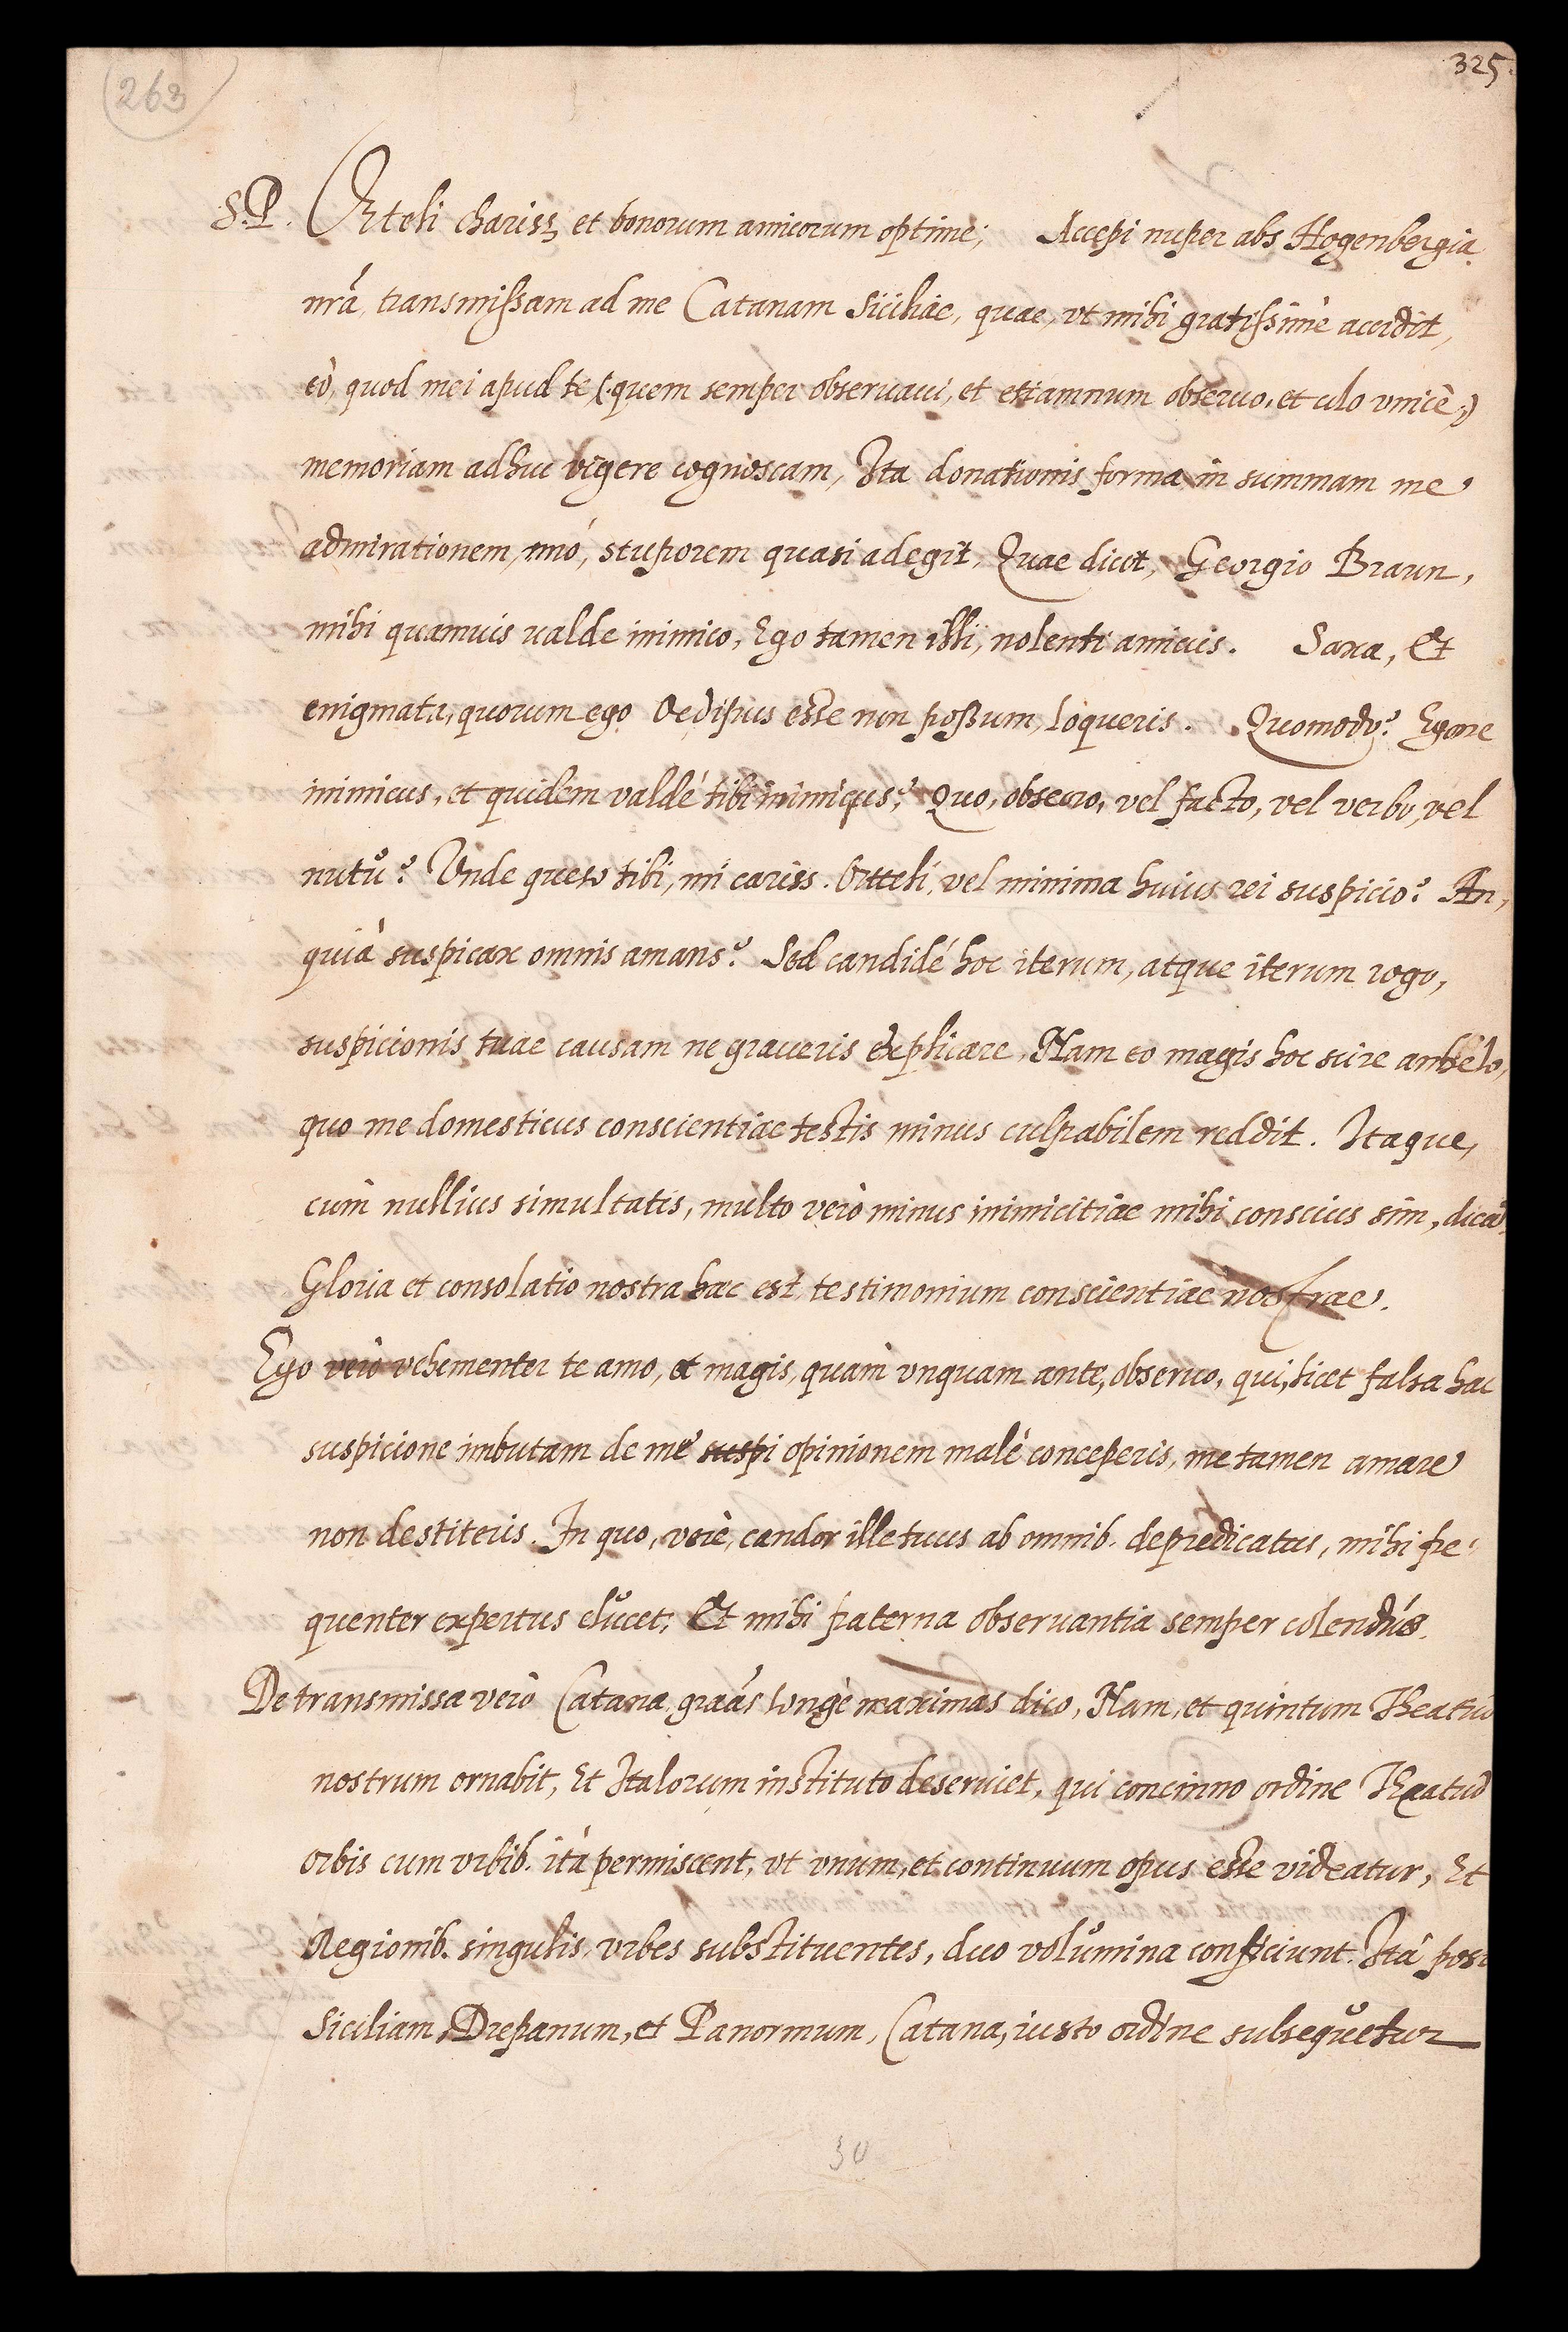 263
325.
S.P. Orteli chariss, et bonorum amicorum optime; Accepi nuper abs Hogenbergia
nrã, transmissam ad me Catanam Siciliae, quae, vt mihi gratissimè accidit,
eò, quod mei apud te, (quem semper obseruaui, et etiamnum obseruo, et colo vnicè,)
memoriam adhuc vigere cognoscam, Ita donationis forma in summam me
admirationem, imò, stuporem quasi adegit, Quae dicit, Georgio Braun,
mihi quamuis valde inimico, Ego tamen illi, nolenti amicus. Saxa, et
enigmata, quorum ego Oedipus esse non possum, loqueris. Quomodo? Egone
inimicus, et quidem valdé tibi inimicus? Quo, obsecro, vel facto, vel verbo, vel
nutu? Vnde queso tibi, mi cariss. Orteli, vel minima huius rei suspicio? An,
quià suspicax omnis amans? Sed candidé hoc iterum, atque iterum rogo,
suspicionis tuae causam ne graueris explicare, Nam eo magis hoc scire anhelo,
quo me domesticus conscientiae testis minus culpabilem reddit. Itaque,
cum nullius simultatis, multo verò minus inimicitiae mihi conscius sim, dicã
Gloria et consolatio nostra haec est, testimonium conscientiae nostrae.
Ego verò vehementer te amo, et magis, quam vnquam ante, obseruo, qui, licet falsa hac
suspicione imbutam de me suspi opinionem malè conceperis, me tamen amare
non destiteris. In quo, verè, candor ille tuus ab omnib. depredicatus, mihi fre-
quenter expertus elucet, Et mihi fraterna obseruantia semper colendus.
De transmissa verò Catana, graãs longè maximas dico, Nam, et quintum Theatrũ
nostrum ornabit, Et Italorum instituto deseruiet, qui concinno ordine Theatrũ
orbis cum vrbib. ità permiscent, vt vnum, et continuum opus esse videatur, Et
Regionib. singulis, vrbes substituentes, duo volumina conficiunt. Ità post
Siciliam, Drepanum, et Panormum, Catana, iusto ordine subsequetur
30